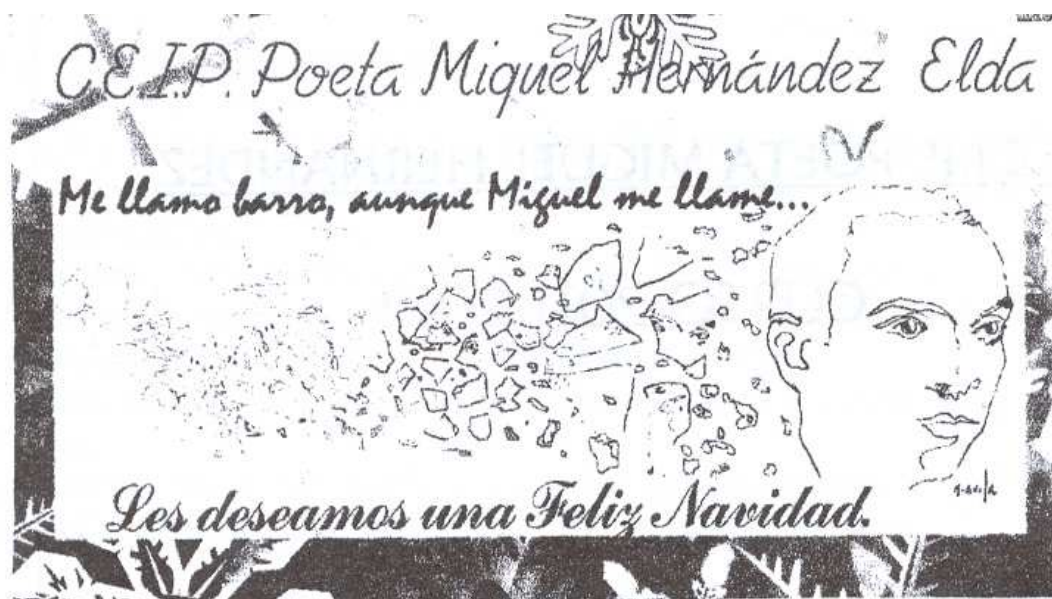 C.E.I.P. Poeta Miguel Hernández Elda
Me llamo barro, aunque Miguel me llame...
Les deseamos una Feliz Navidad.